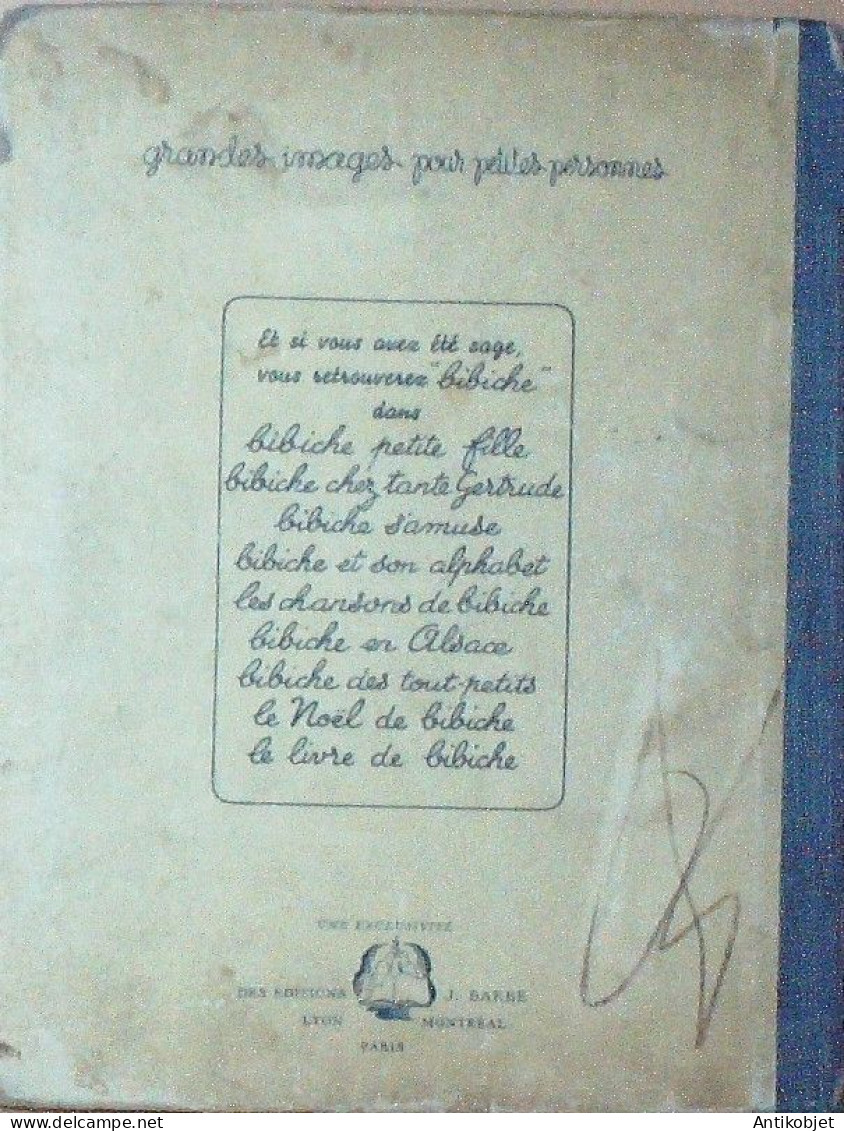 grandes images pour petites personnes
Et si vous avez été sage,
vous retrouverez "bibiche"
dans
bibiche petite fille
bibiche chez tante Gertrude
bibiche s'amuse
bibiche et son alphabet
les chansons de bibiche
bibiche en Alsace
bibiche des tout-petits
le Noël de bibiche
le livre de bibiche
UNE EXCLUSIVITÉ
DES EDITIONS J. BARBE
LYON MONTRÉAL
PARIS
delcampe.net
Antikobjet